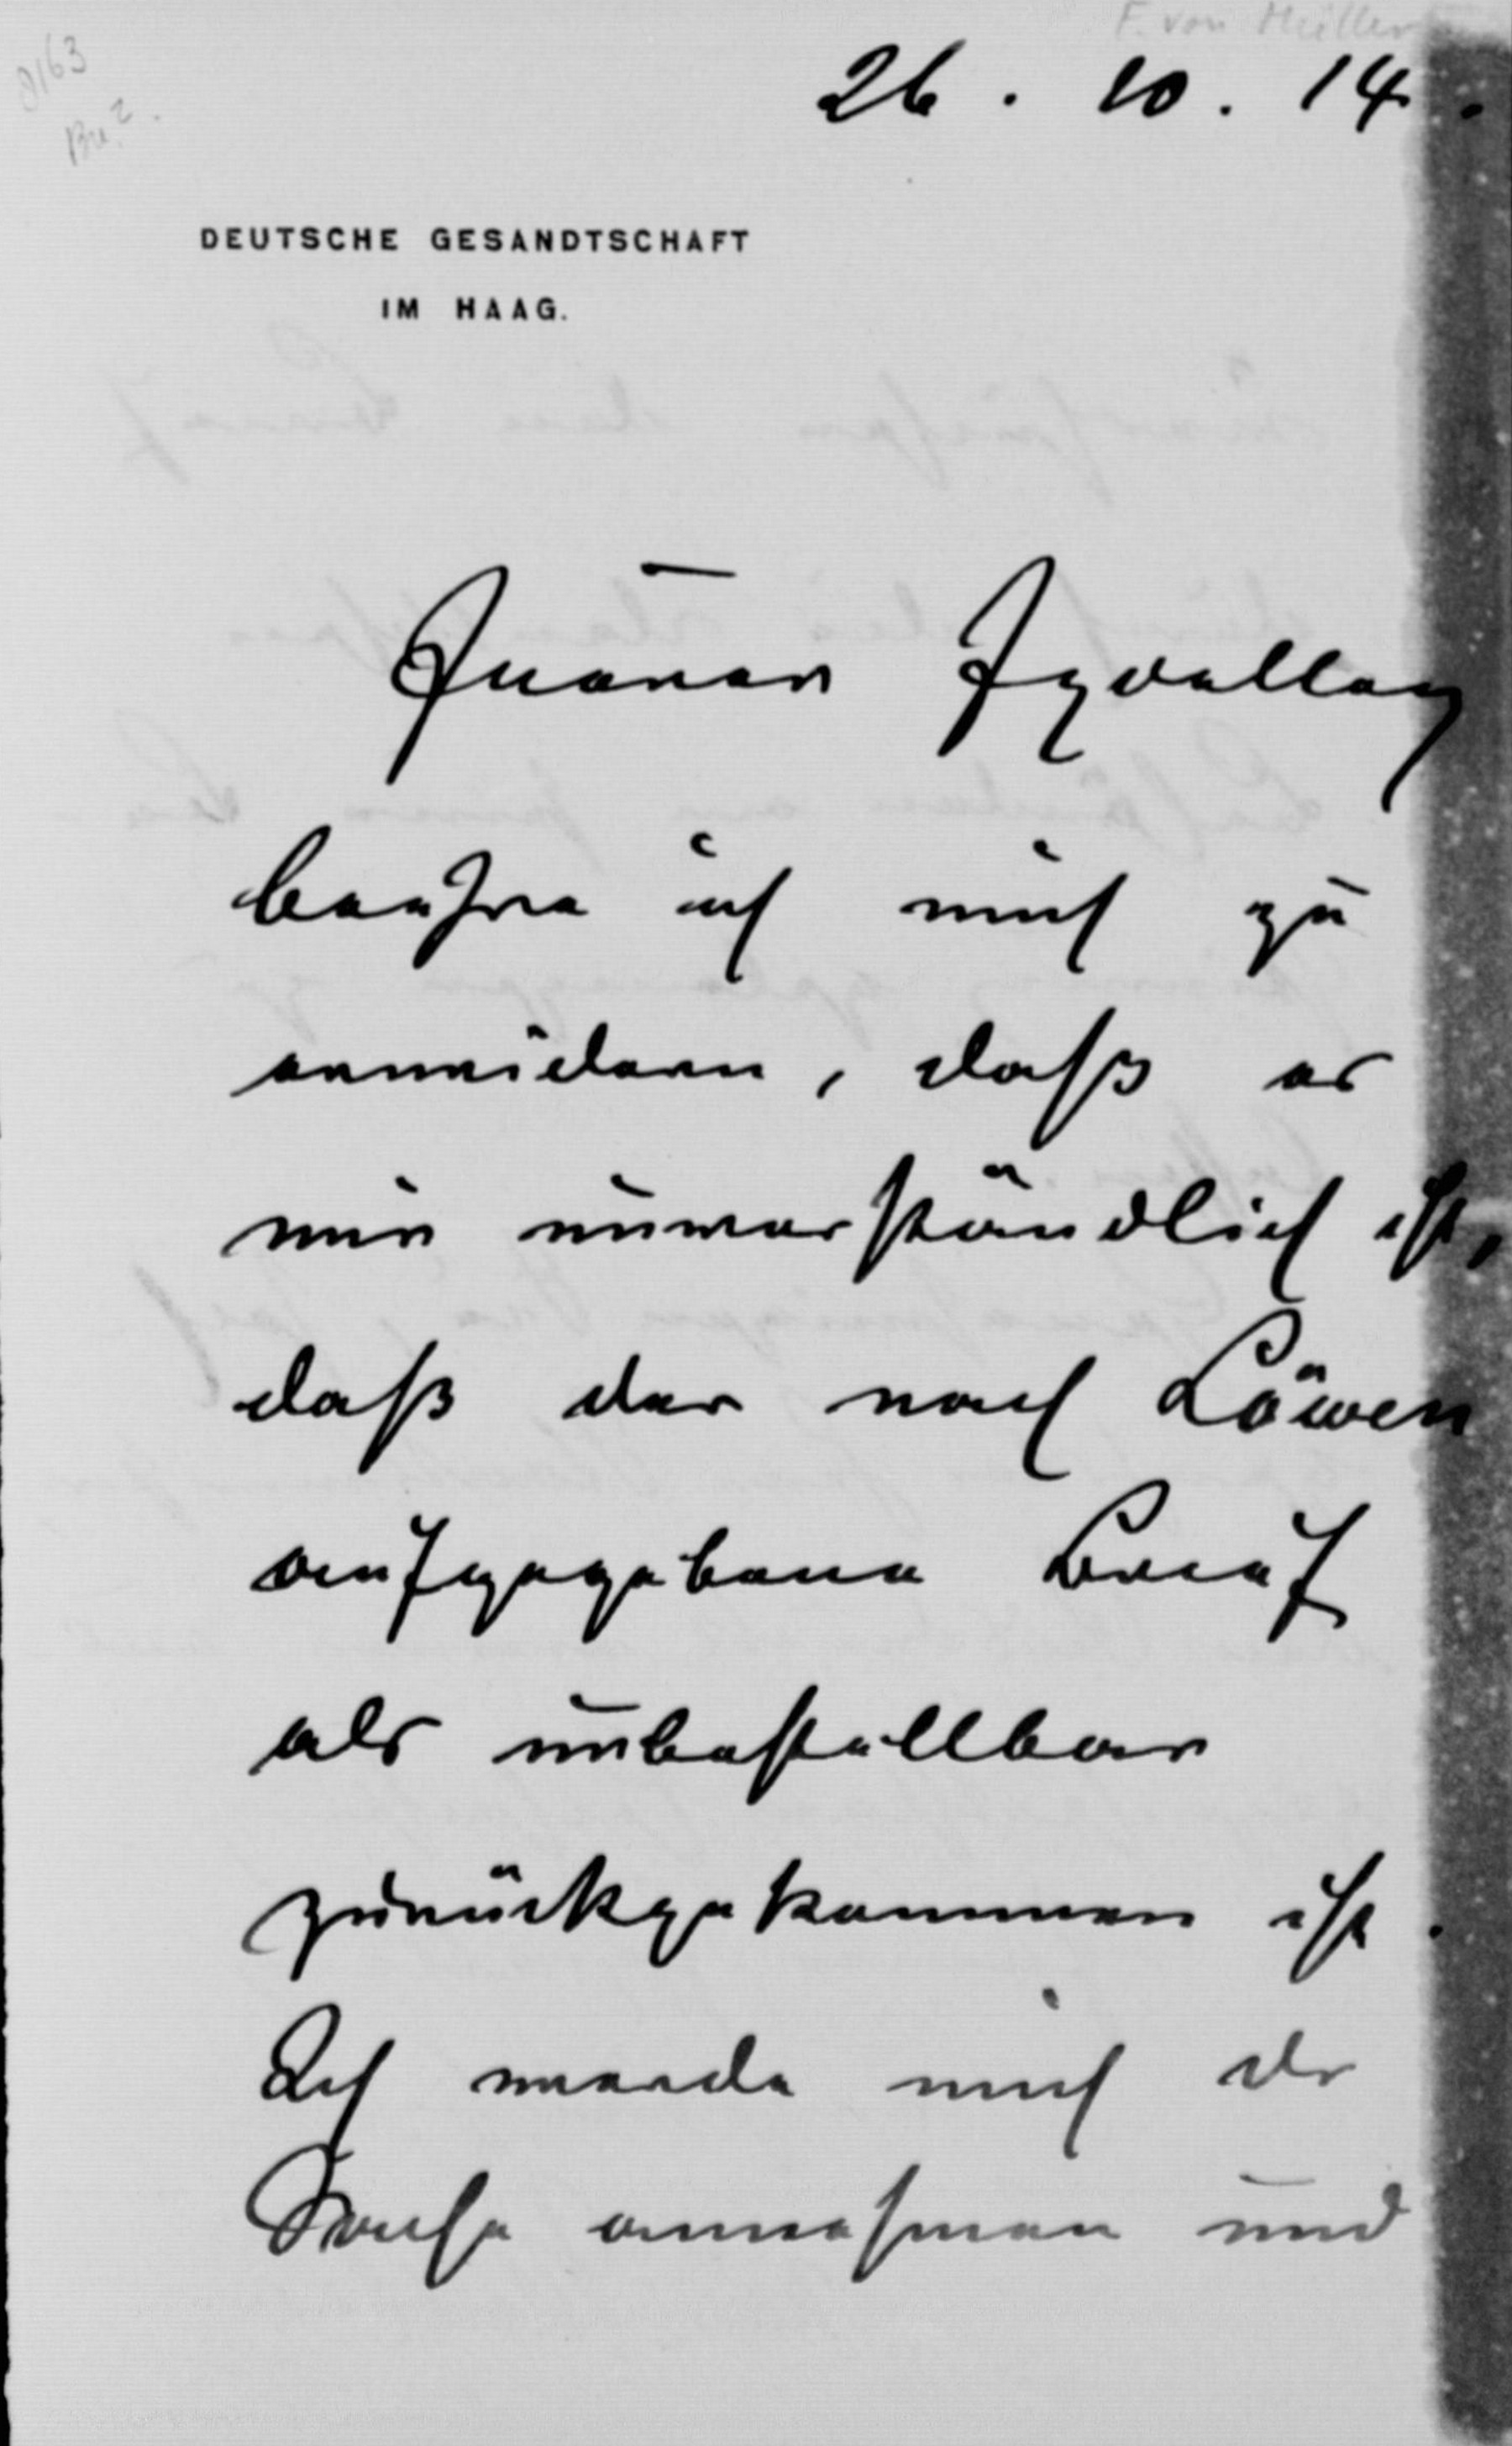 F. von Müller
26. 10. 14.
DEUTSCHE GESANDTSCHAFT
IM HAAG.
Euerer Exzellenz
beehre ich mich zu
erwidern, daß es
mir unverständlich ist,
daß der nach Löwen
aufgegebene Brief
als unbestellbar
zurückgekommen ist.
Ich werde mich der
Sache annehmen und